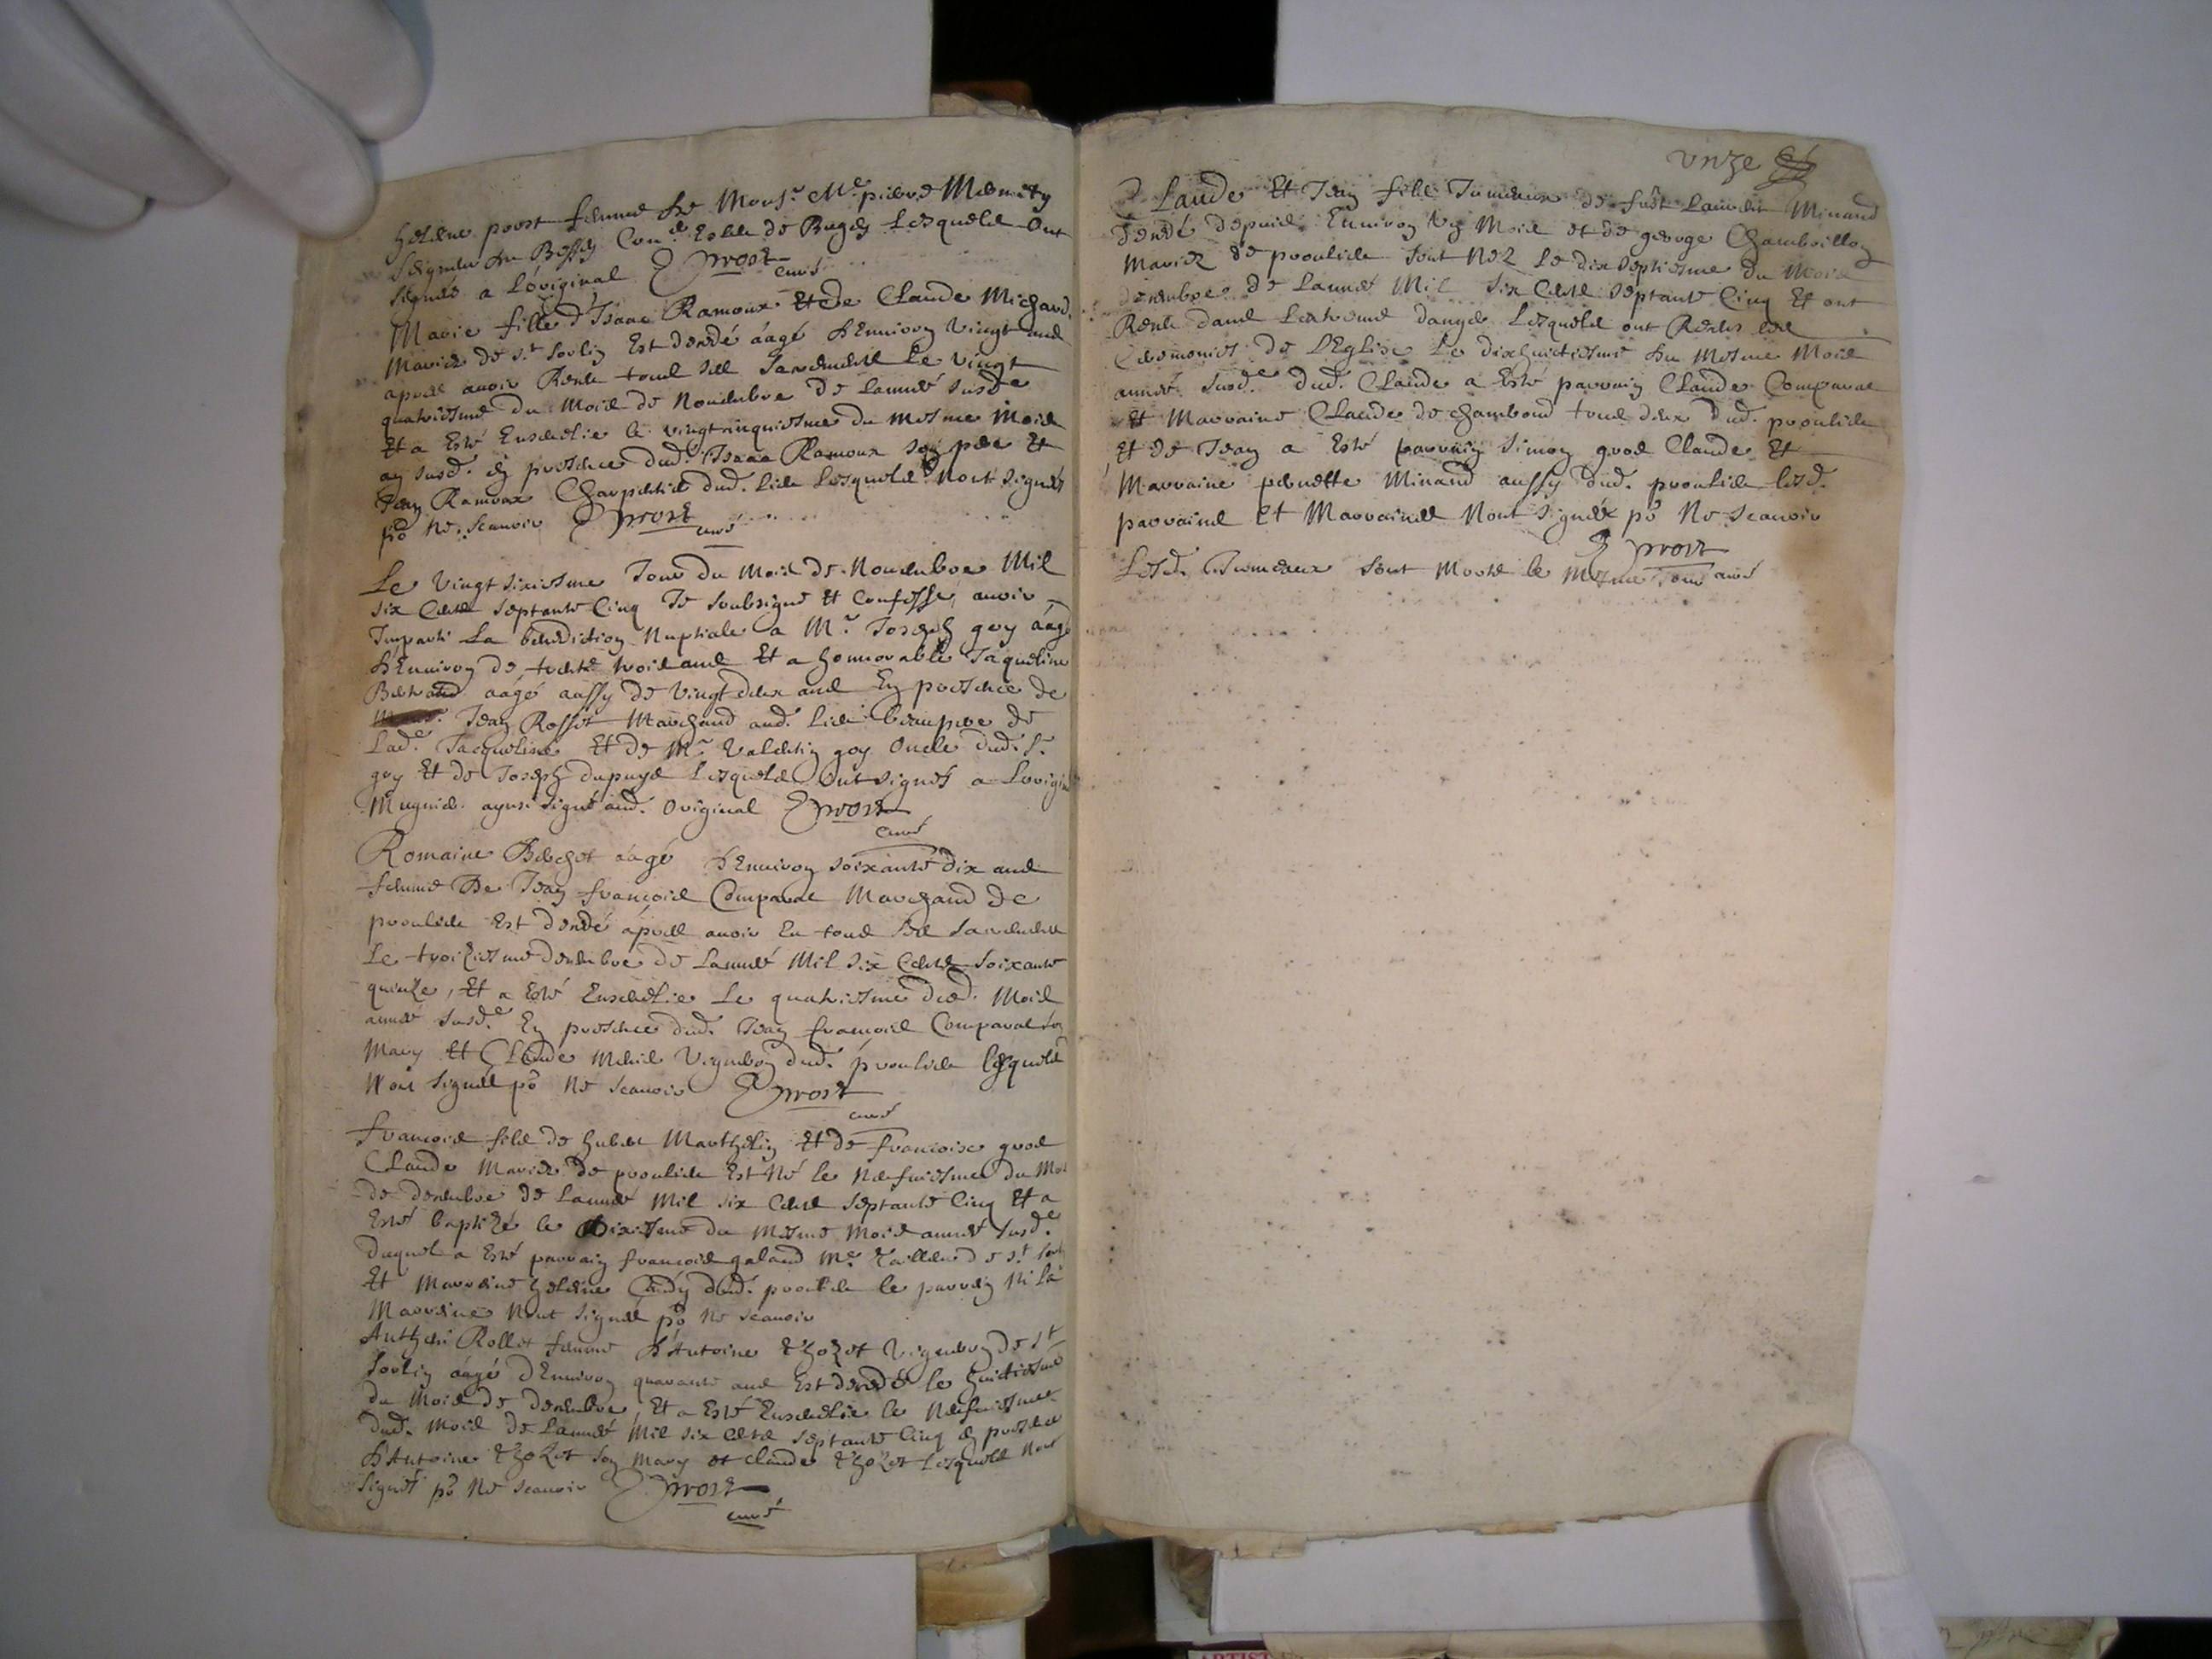 helene prost femme de Mons.r M.e pierre Memity
Seigneur du Bessey Con.er Esleu de Bugey Lesquels Ont
signés a Lóriginal Prost curé
Marie fille d'Isaac Ramoux Et de Claude Michard
Mariez de S.t Sorlin Est decedé áagé d'Enuiron Vingt ans
apres auoir Receu tous ses Sacremens Le vingt
quatriesme du Mois de Nouembre de Lanneé susd.e
Et a Esté Enseuelie le vingtcinquiesme du mesme Mois
an susd. En presence dud. Isaac Ramoux son pere Et
Jean Ramoux Charpentier dud. Lieu Lesquels N'ont signés
po Ne scauoir Prost curé
Le Vingt sixiesme Jour du Mois de Nouembre Mil
six Cents septante Cinq Je soubsigné Et Confesse auoir
Imparti La benediction Nuptiale a M.r Joseph goy áagé
d'Enuiron de trente trois ans Et a honnorable Jaqueline
Bertrand aagé aussy de Vingt deux ans En presence de
Jean Rosset Marchand aud. Lieu beaupere de
Lad.e Jacqueline Et de M.r Valentin goy Oncle dud. S.r
goy Et de Joseph dupuys Lesquels Ont signés a Lorigin
Mugnier aynsi signé aud. Original Prost
curé
Romaine Berchet áagé d'Enuiron soixante dix ans
femme De Jean françois Comparat Marchand de
proulieu Est decedé ápres auoir Eu tous ses Sacremens
Le troiziesme decembre de Lanneé Mil six Cents soixante
quinze, Et a Esté Enseuelie Le quatriesme dud. Mois
anneé susd.e En presence dud. Jean françois Comparat son
Mary Et Claude Vigneron dud. proulieu lesquels
N'ont signés po Ne scauoir Prost
curé
françois fils de hubert Marthelin Et de francoise gros
Claude Mariez de proulieu Est Né le Neufuiesme du Mois
de decembre de Lanneé Mil six Cents septante Cinq Et a
Esté baptizé le Dixiesme du Mesme Mois anneé susd.e
Duquel a Esté parrain francois galand M.e tailleur de S.t Sorlin
Et Marraine helene dud. proulieu le parrein Ni La
Marreine N'ont signés po Ne scauoir
Anthea Rollet femme d'Antoine thozet Vigneron de S.t
Sorlin áagé d'Enuiron quarante ans Est decedé le huictiesme
du Mois de decembre, Et a Esté Enseuelie le Neufuiesme
dud. Mois de Lanneé Mil six Cents septante Cinq En presence
d'Antoine thozet son Mary et Claude thozet Lesquels N'ont
signés po Ne scauoir Prost
curé
Unze
Claude Et Jean fils Jumeaux de fust Laurent Minand
decedé depuis Enuiron Mois et de george Chambeillon
Mariez de proulieu sont Nez Le dix septiesme du Mois
decembre de Lanneé Mil six Cents septante Cinq Et ont
Receu dans Lextreme dange Lesquels ont Receu Les
Ceremonies de L'Eglise Le dixhuictiesme du Mesme Mois
anneé susd.e dud. Claude a Esté parrain Claude Comparat
Et Marraine Claude de chambond tous deux dud. proulieu
Et de Jean a Esté parrain Simon gros Claude Et
Marraine pernette Minand aussy dud. proulieu lesd.
parrains Et Marraines N'ont signés po Ne scauoir
Prost
Lesd. Jumeaux sont Morts le Mesme Jour curé